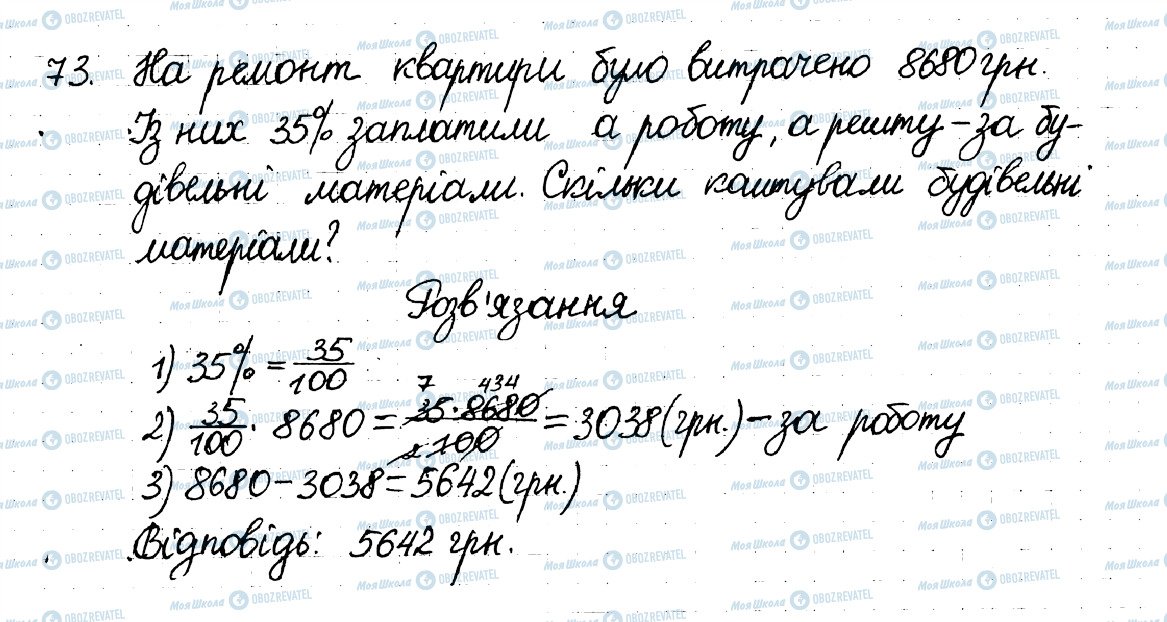 73. На ремонт квартири було витрачено 8680 грн.
Із них 35% заплатили а роботу, а решту – за бу-
дівельні матеріали. Скільки каштували будівельні
матеріали?
Розв'язання
1) 35% = 35/100
2) 35/100 · 8680 = 35·8680/100 = 3038 (грн.) – за роботу
7 434
3) 8680 – 3038 = 5642 (грн.)
Відповідь: 5642 грн.
МояШкола OBOZREVATEL